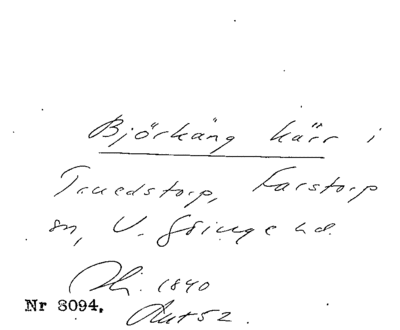 Björkäng kärr i
Truedstorp, Farstorp
sn, V. Göinge hd.
Hi. 1840
Nr 3094. Akt 52.